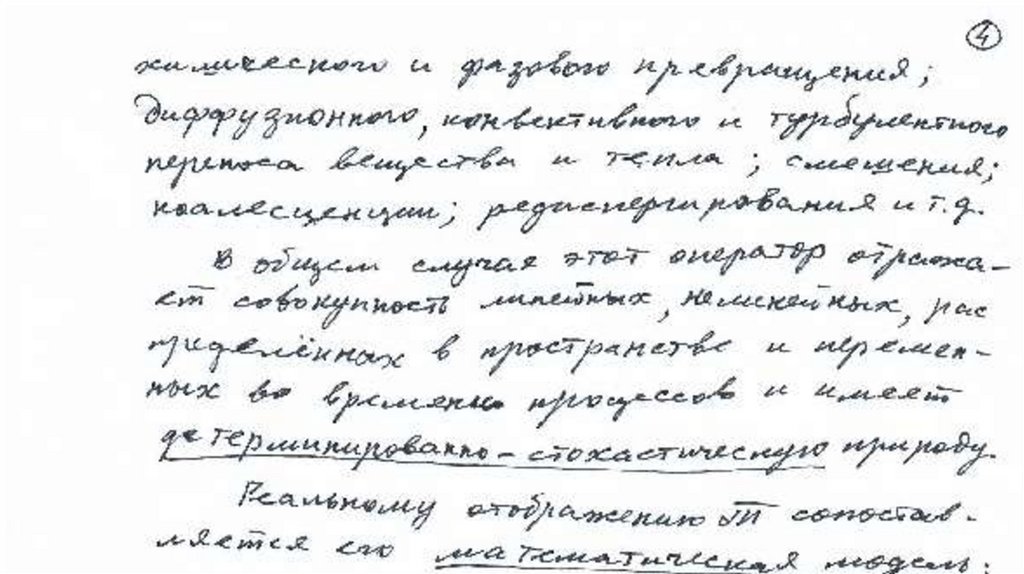 4
химического и фазового превращения;
диффузионного, конвективного и турбулентного
переноса вещества и тепла; смешения;
коалесценции; редиспергирования и т.д.
В общем случае этот оператор отража-
ет совокупность линейных, нелинейных, рас
пределённых в пространстве и перемен-
ных во времени процессов и имеет
детерминированно-стохастическую природу.
Реальному отображению сопостав-
ляется его математическая модель: